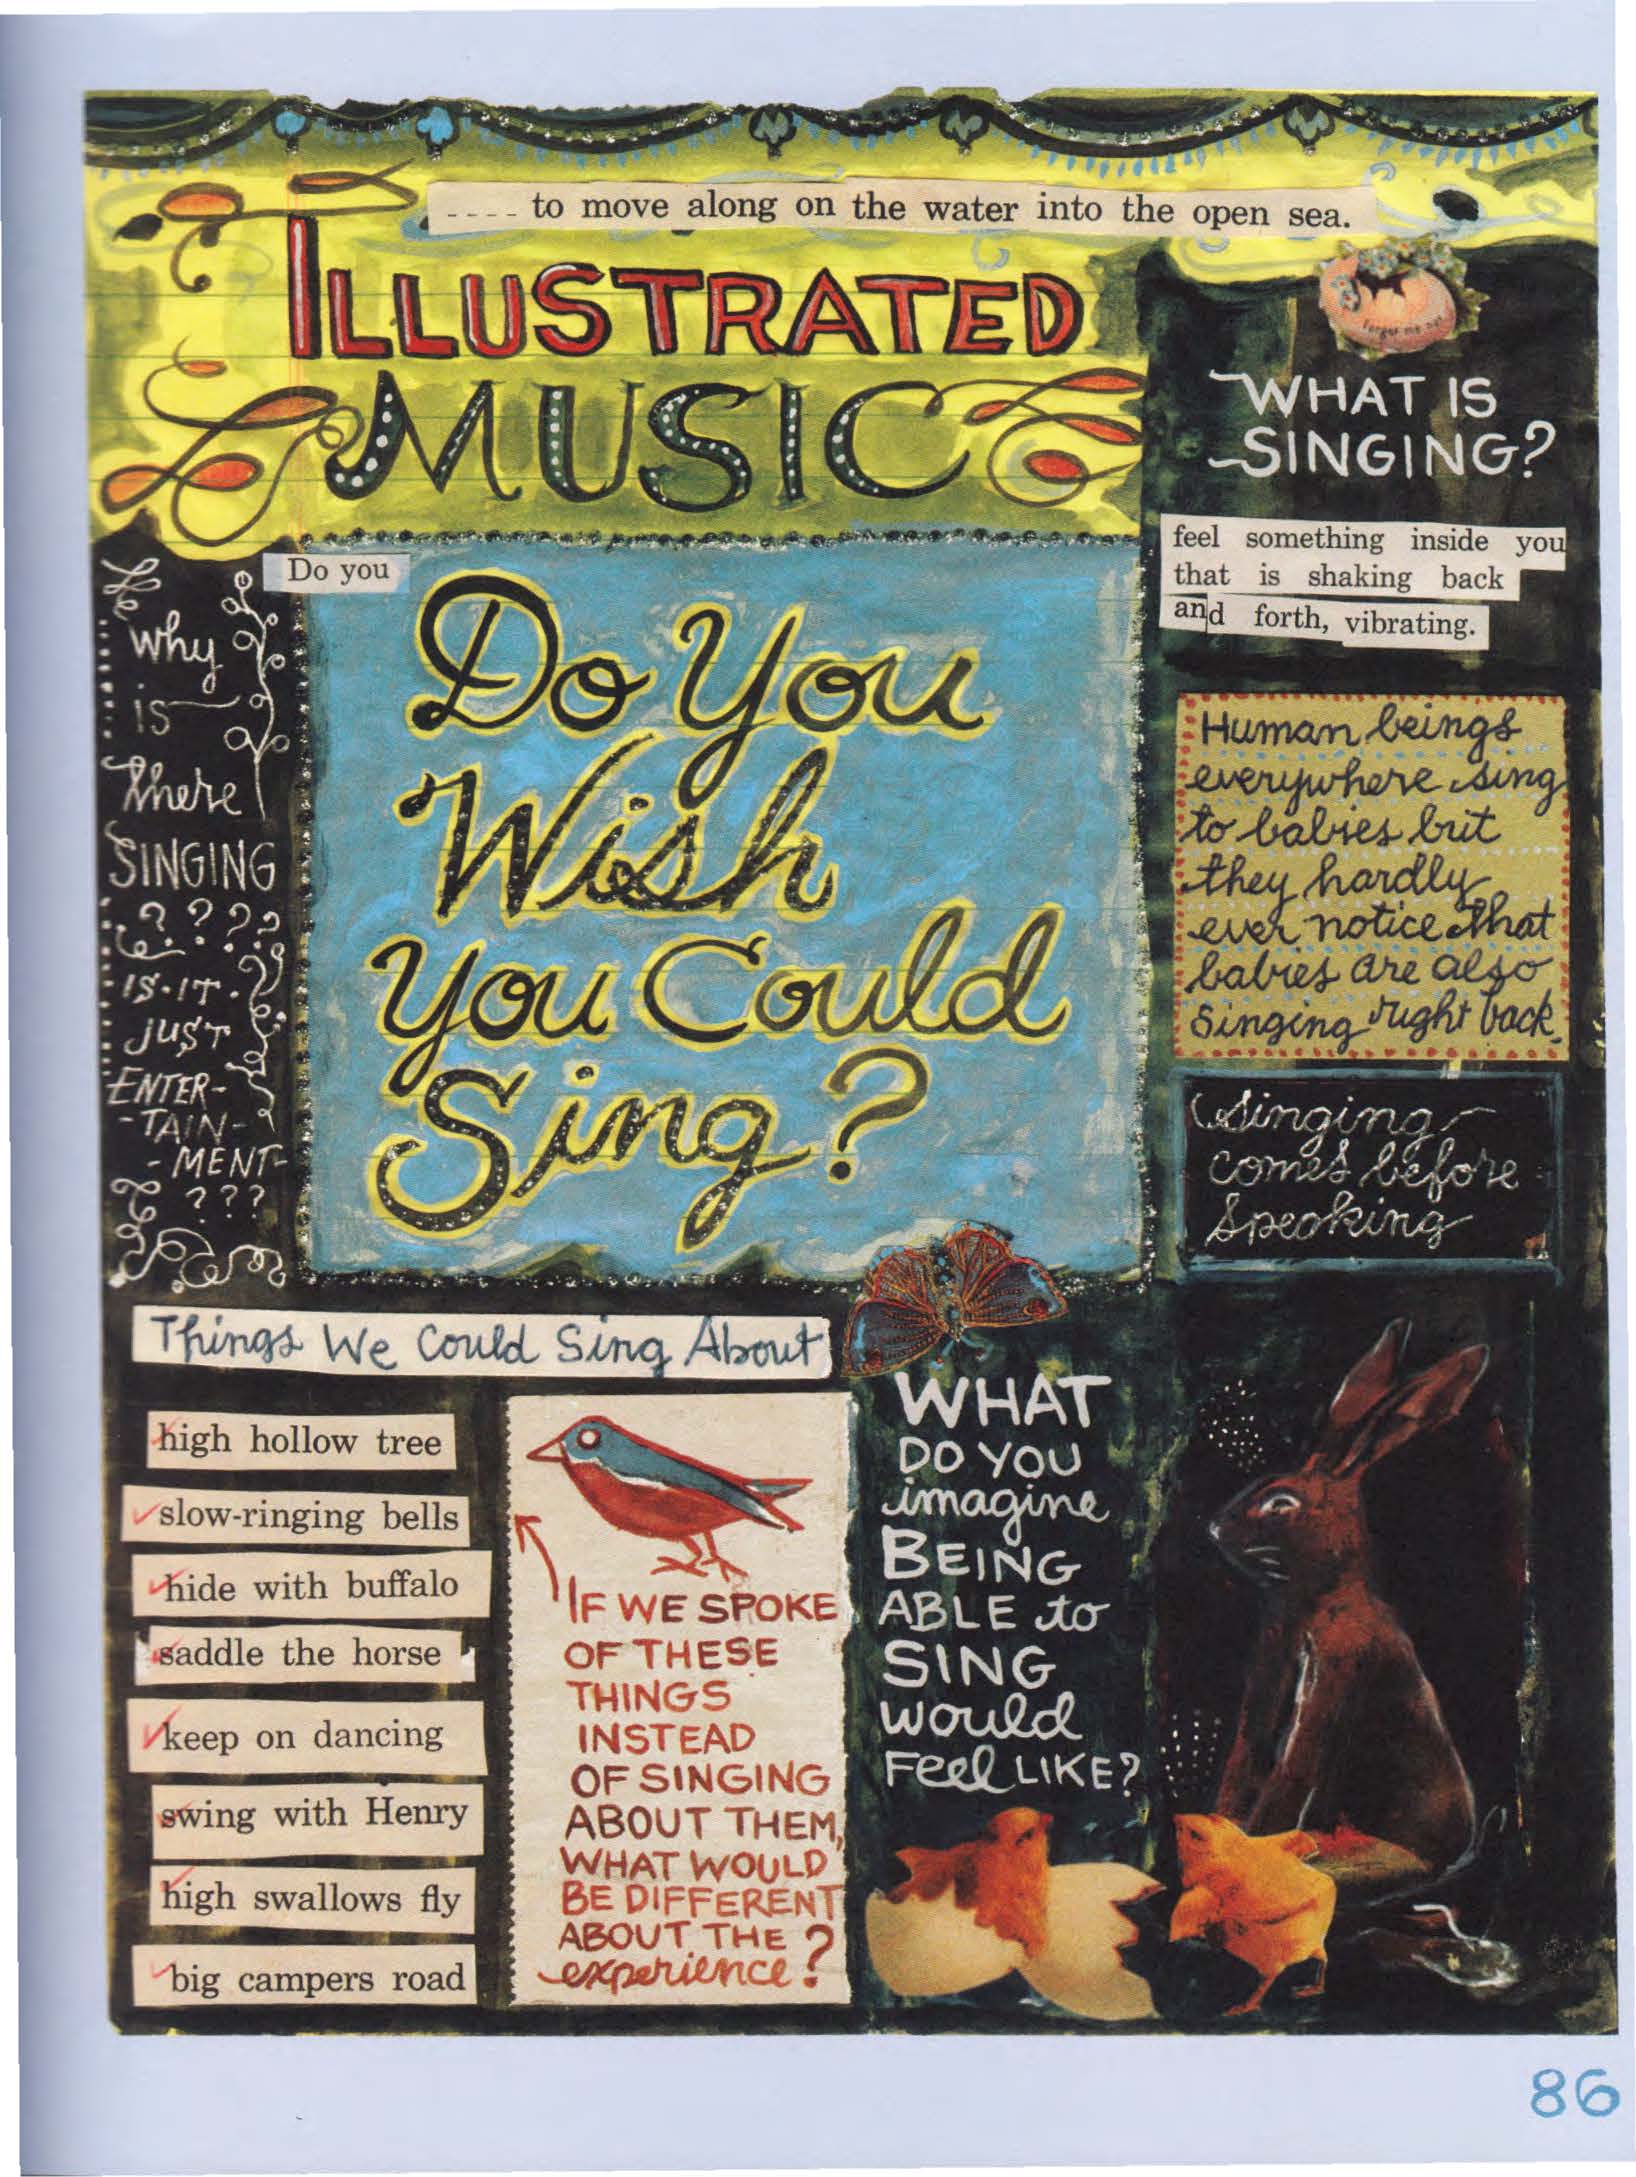 ---- to move along on the water into the open sea.
ILLUSTRATED
MUSIC
forget me not
WHAT IS
SINGING?
feel something inside you
that is shaking back
and forth, vibrating.
Do you
Do You
Wish
You Could
Sing?
Why
is
there
SINGING
? ? ? ?
IS IT
JUST
ENTER-
-TAIN-
-MENT-
? ? ?
Human beings
everywhere sing
to babies but
they hardly
ever notice that
babies are also
singing right back.
Singing
comes before
speaking
Things We Could Sing About
high hollow tree
slow-ringing bells
hide with buffalo
saddle the horse
keep on dancing
swing with Henry
high swallows fly
big campers road
IF WE SPOKE
OF THESE
THINGS
INSTEAD
OF SINGING
ABOUT THEM,
WHAT WOULD
BE DIFFERENT
ABOUT THE
experience?
WHAT
DO YOU
imagine
BEING
ABLE to
SING
would
Feel LIKE?
86